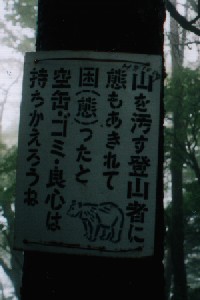 山を汚す登山者に
熊もあきれて
困(態)ったと
空缶・ゴミ・良心は
持ちかえろうね